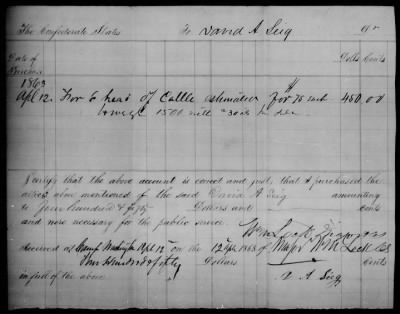 The Confederate States To David A Sieg Dr
Date of Dolls Cents
1863
Apl 12. For 6 head of Cattle estimated $
for 75 each 450.00
to weigh 1500
I certify that the above account is correct and just, that I purchased the
above mentioned of the said David A Sieg amounting
to four hundred & fifty Dollars and cents
and were necessary for the public service
Received at Camp Washington Apl 12 on the 12 Apl 1863 of Major
four hundred & fifty Dollars cents
in full of the above D A Sieg